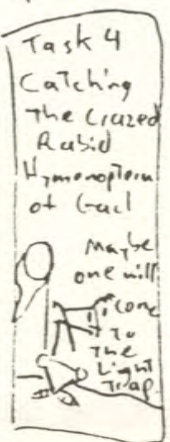 Task 4
Catching
The Crazed
Rabid
Hymenoptera
of Gaul
Maybe
one will
come
To
The
Light
Trap.